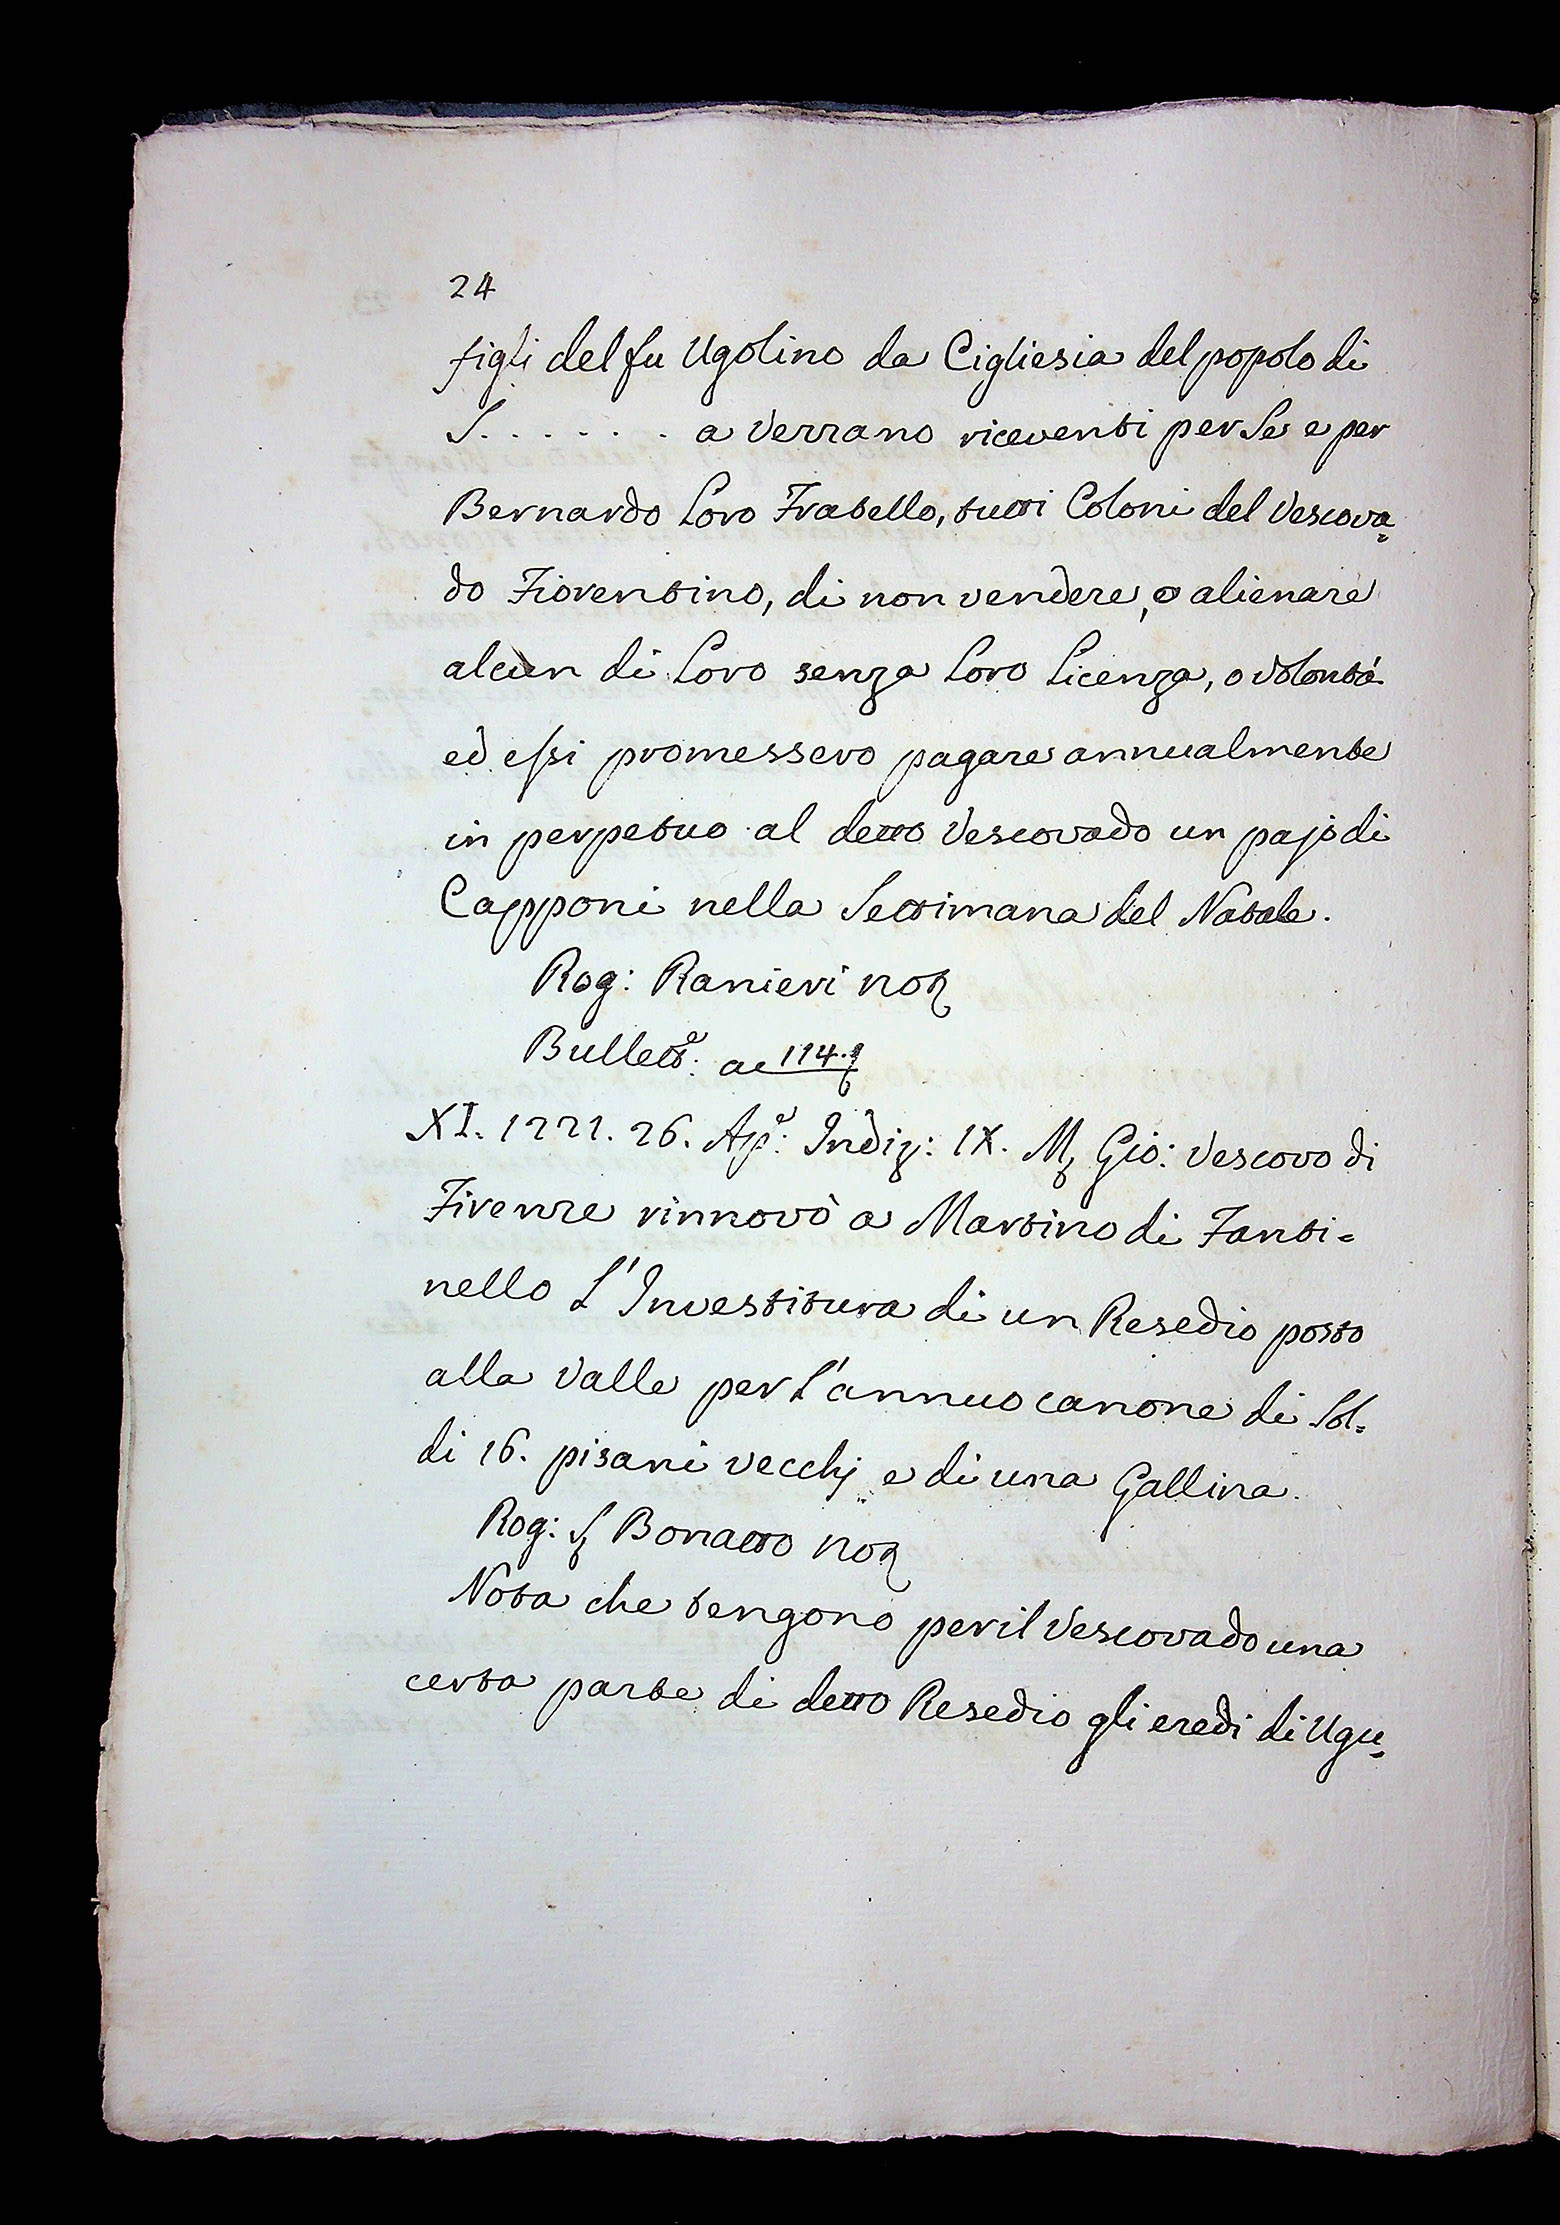 24
figli del fu Ugolino da Cigliesia del popolo di
S. . . . . . . a Verrano riceventi per Se e per
Bernardo Loro Fratello, tutti Coloni del Vescova=
do Fiorentino, di non vendere, o alienare
alcun di Loro senza Loro Licenza, o volontà
ed essi promessero pagare annualmente
in perpetuo al detto Vescovado un pajo di
Capponi nella Settimana del Natale.
Rog: Ranieri no
Bullett: ac 114.
XI. 1221. 26. Ap: Indiz: IX. M Gio: Vescovo di
Firenze rinnovò a Martino di Fanti=
nello L'Investitura di un Resedio posto
alla Valle per L'annuo canone di Sol=
di 16. pisani vecchj e di una Gallina.
Rog: S Bonatto no
Nota che tengono per il Vescovado una
certa parte di detto Resedio gli eredi di Ugu=